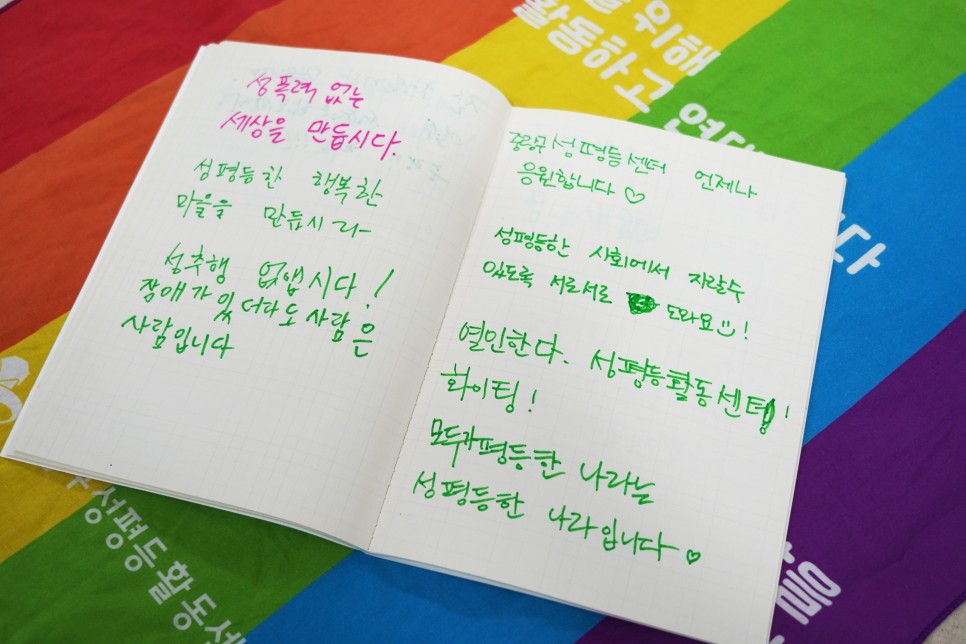 성폭력 없는
세상을 만듭시다.
성평등한 행복한
마을을 만듭시다
성추행 없앱시다!
장애가 있더라도 사람은
사람입니다
중랑구 성평등센터 언제나
응원합니다♡
성평등한 사회에서 자랄수
있도록 서로서로 도와요☺!
열인한다. 성평등활동센터!
화이팅!
모두가평등한 나라는
성평등한 나라입니다♡
위해
활동하고 연대
다
성평등활동센
을